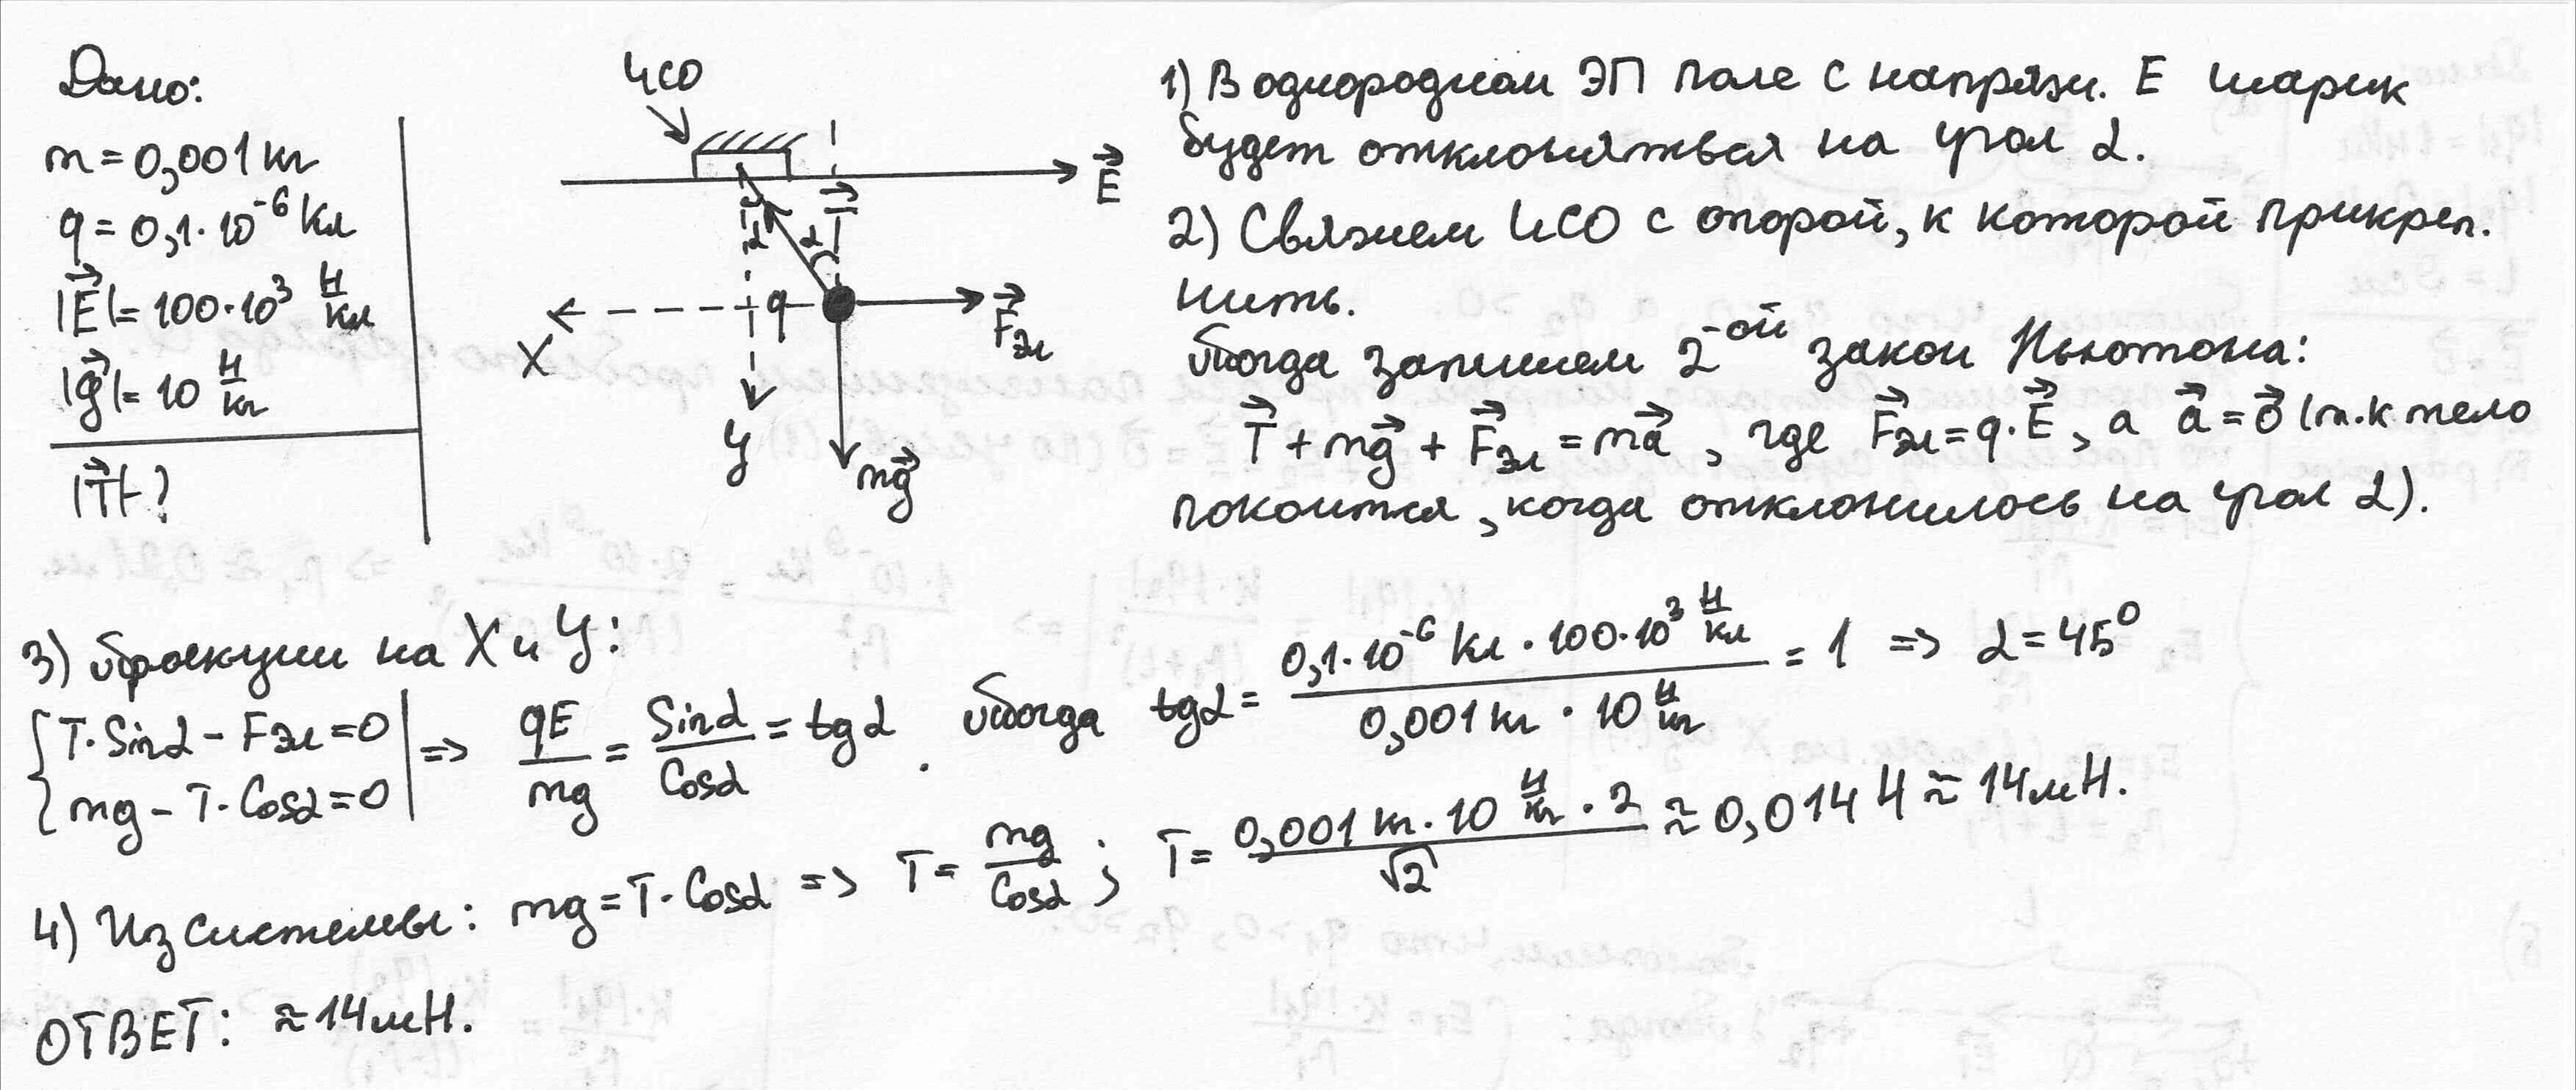 Дано:
m = 0,001 кг
q = 0,1·10⁻⁶ Кл
|E⃗| = 100·10³ Н/Кл
|g⃗| = 10 Н/кг
|T⃗| - ?
ИСО
E⃗
T⃗
α α
q
F⃗эл
X
y
mg⃗
1) В однородном ЭП поле с напряж. E шарик
будет отклоняться на угол α.
2) Свяжем ИСО с опорой, к которой прикреп.
нить.
Тогда запишем 2-ой закон Ньютона:
T⃗ + mg⃗ + F⃗эл = ma⃗, где F⃗эл = q·E⃗, а a⃗ = 0⃗ (т.к тело
покоится, когда отклонилось на угол α).
3) Проекции на X и Y:
{T·Sinα - Fэл = 0
{mg - T·Cosα = 0 | => qE/mg = Sinα/Cosα = tgα. Тогда tgα = (0,1·10⁻⁶ Кл · 100·10³ Н/Кл)/(0,001 кг · 10 Н/кг) = 1 => α = 45⁰
4) Из системы: mg = T·Cosα => T = mg/Cosα; T = (0,001 кг·10 Н/кг·2)/√2 ≈ 0,014 Н ≈ 14 мН.
ОТВЕТ: ≈ 14 мН.